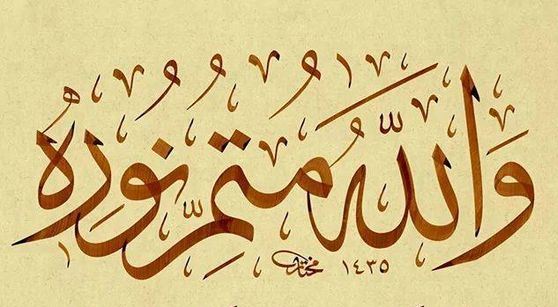 وَاللّٰهُ مُتِمُّ نُورِهُ
مختار ١٤٣٥